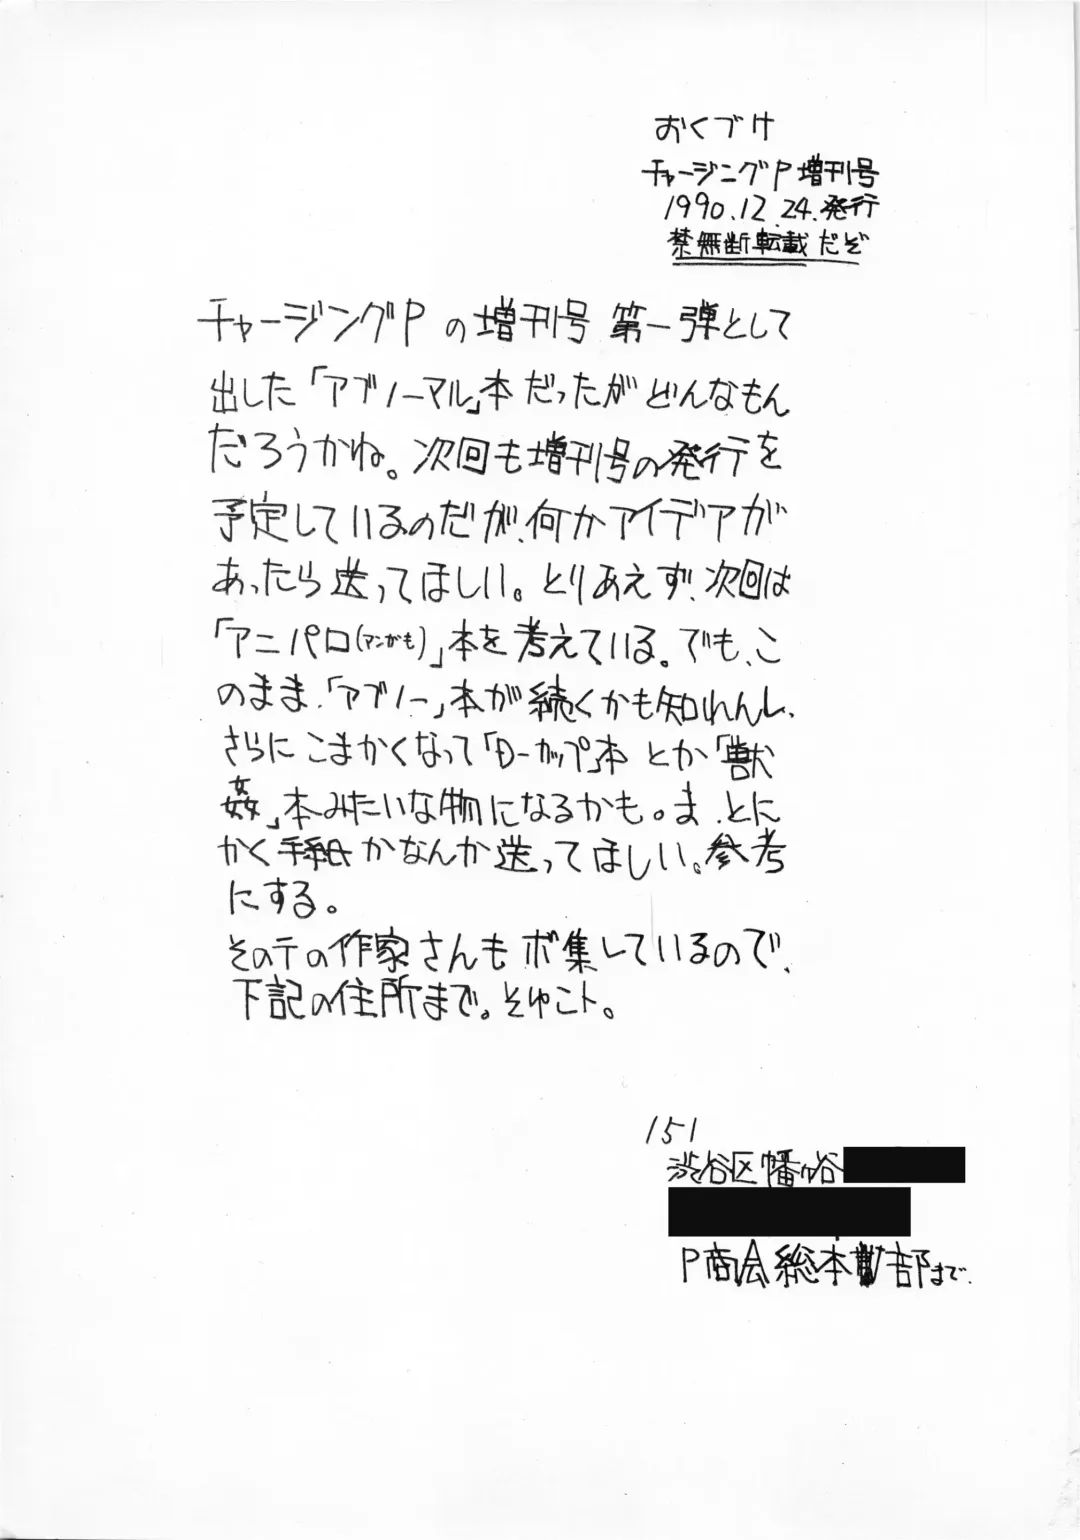 おくづけ
チャージングP 増刊号
1990.12.24.発行
禁無断転載だぞ
チャージングPの増刊号 第一弾として
出した「アブノーマル」本だったがどんなもん
だろうかね。次回も増刊号の発行を
予定しているのだが、何かアイデアが
あったら送ってほしい。とりあえず、次回は
「アニパロ(マンガも)」本を考えている。でも、こ
のまま、「アブノー」本が続くかも知れんし、
さらにこまかくなって「Dーカップ」本とか「獣
姦」本みたいな物になるかも。ま、とに
かく手紙かなんか送ってほしい。参考
にする。
そのテの作家さんもボ集しているので、
下記の住所まで。そゆこト。
151
渋谷区幡ヶ谷
P商会総本部まで.